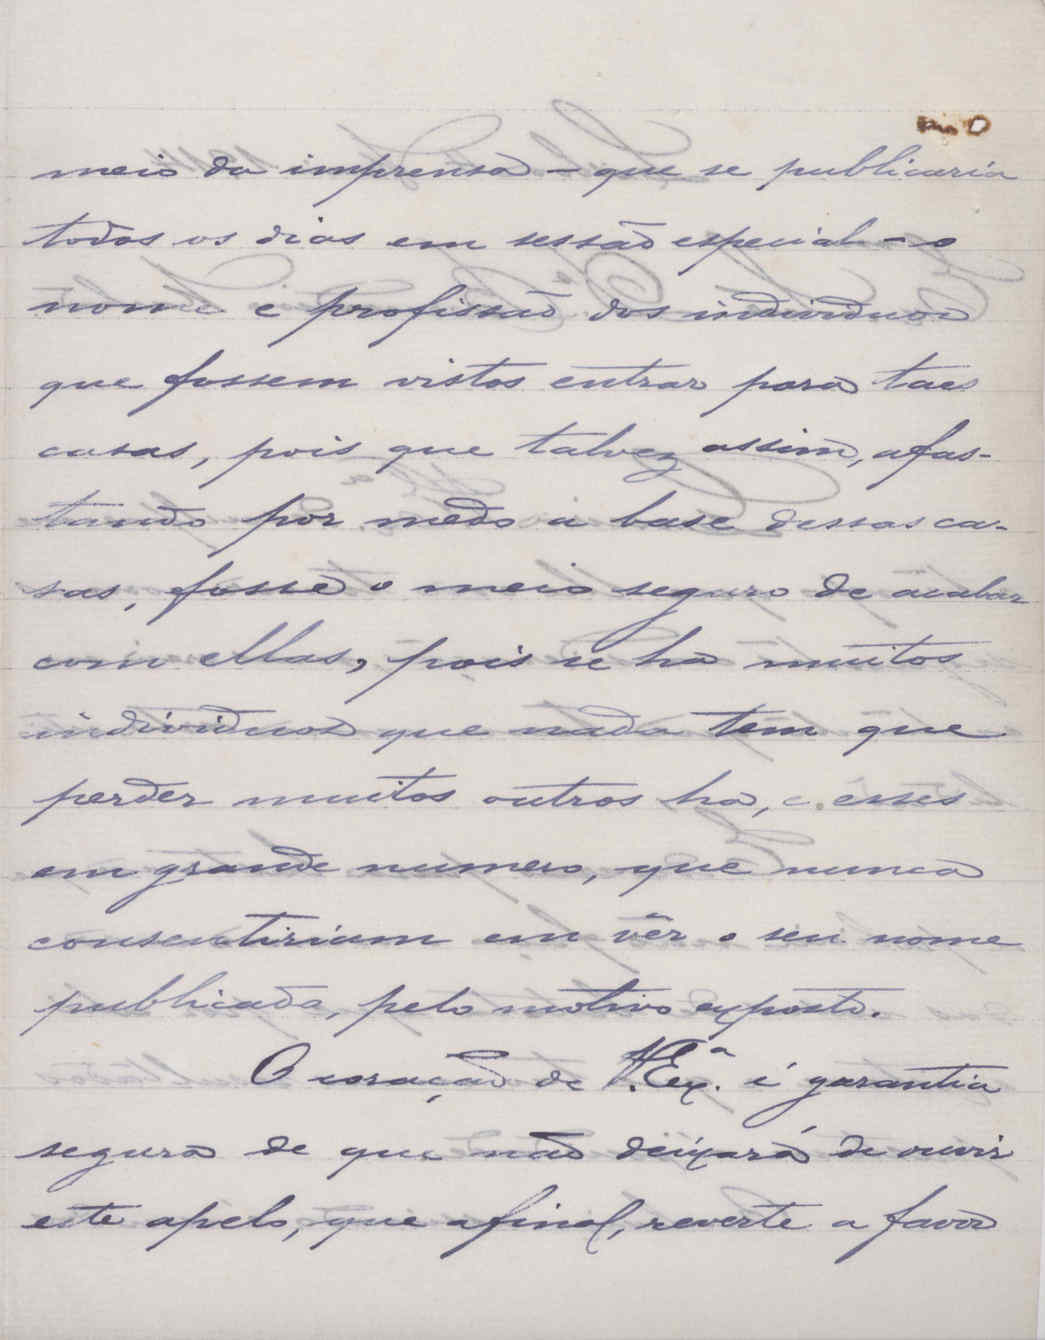 meio da imprensa - que se publicaria
todos os dias em sessão especial - o
nome e profissão dos individuos
que fossem vistos entrar para taes
casas, pois que talvez assim, afas-
tando por medo a base dessas ca-
sas, fosse o meio seguro de acabar
com ellas, pois se ha muitos
individuos que nada tem que
perder muitos outros ha, e esses
em grande numero, que nunca
consentiriam em vêr o seu nome
publicado, pelo motivo exposto.
O coração de V. Ex.ª é garantia
segura de que não deixará de ouvir
este apelo, que afinal, reverte a favor